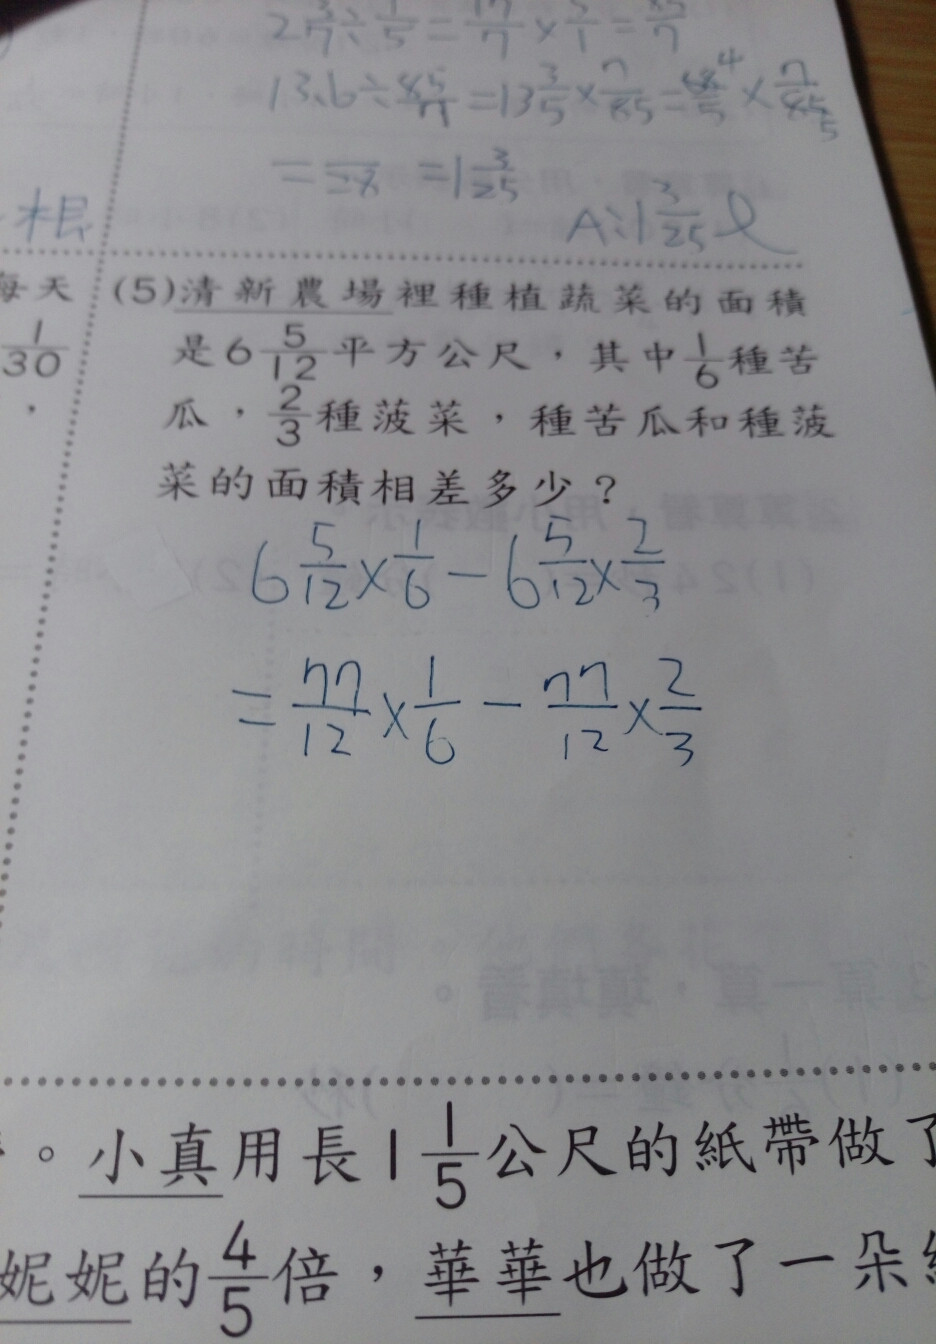 2 3/7 ÷ 1/5 = 17/7 × 5/1 = 85/7
13.6 ÷ 85/7 = 13 3/5 × 7/85 = 68/5 4 × 7/85 5
= = 1 3/25
A:1 3/25 ℓ
根
每天
1/30
，
(5)清新農場裡種植蔬菜的面積
是6 5/12平方公尺，其中1/6種苦
瓜，2/3種菠菜，種苦瓜和種菠
菜的面積相差多少？
6 5/12 × 1/6 − 6 5/12 × 2/3
= 77/12 × 1/6 − 77/12 × 2/3
。小真用長1 1/5公尺的紙帶做了
妮妮的4/5倍，華華也做了一朵